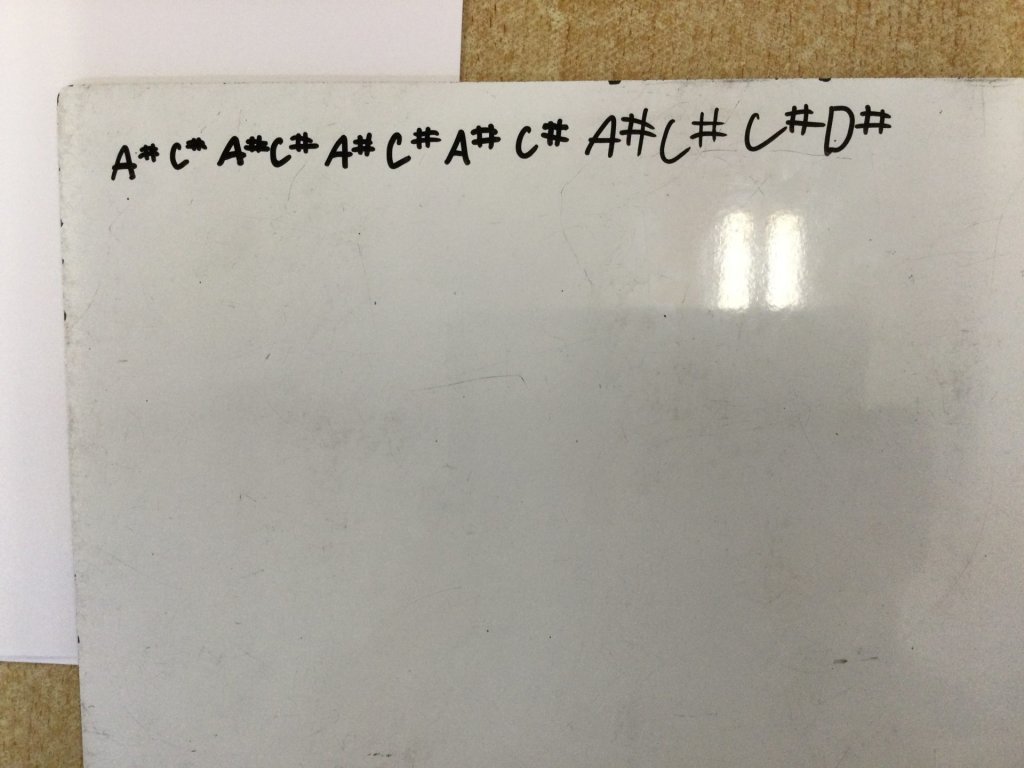 A# C# A# C# A# C# A# C# A# C# C# D#